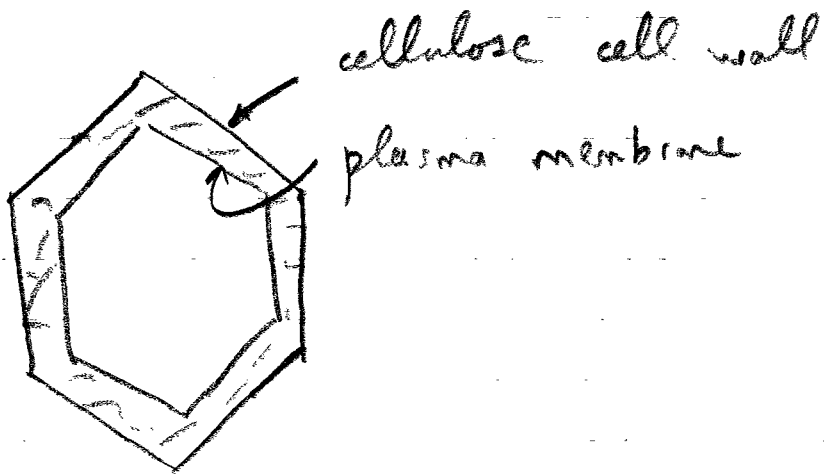 cellulose cell wall
plasma membrane